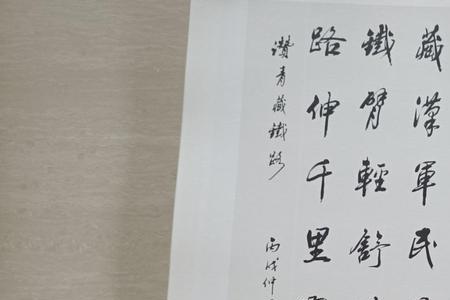 藏漢軍民
鐵臂輕舒
路伸千里
讚青藏鐵路
丙戌仲